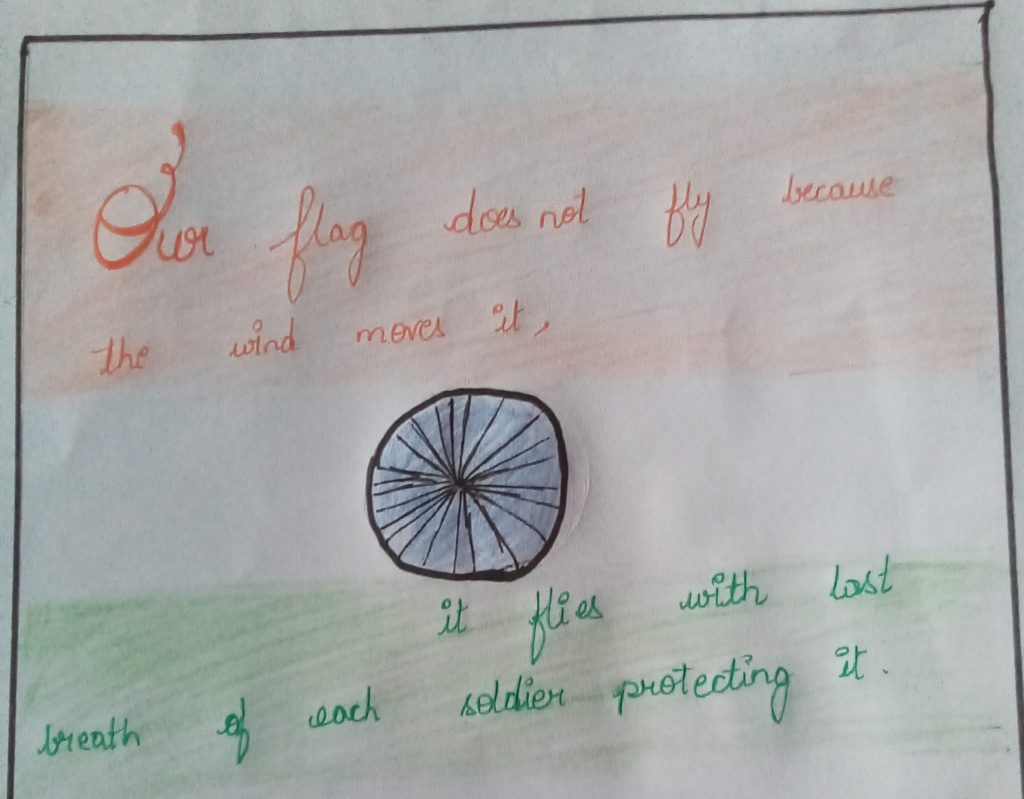 Our flag does not fly because
the wind moves it,
it flies with last
breath of each soldier protecting it.